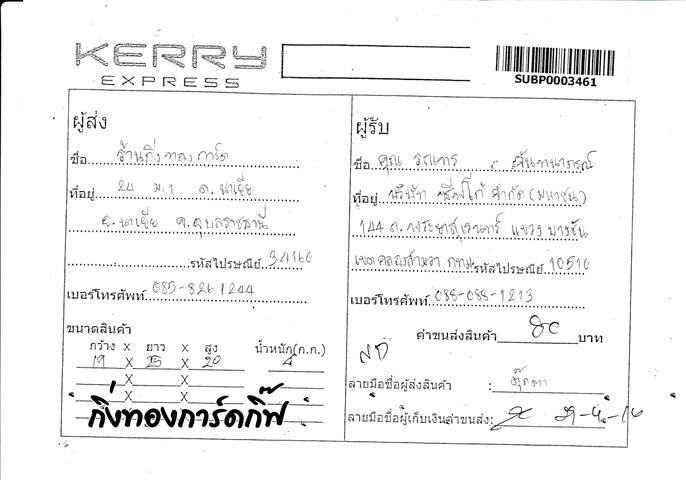 KERRY
EXPRESS
SUBP0003461
ผู้ส่ง
ชื่อ ร้านกิ่งทองการ์ด
ที่อยู่ 24 ม.1 ต. นาเยีย
อ.นาเยีย จ.อุบลราชธานี
รหัสไปรษณีย์ 34160
เบอร์โทรศัพท์ 085-826 1244
ขนาดสินค้า
กว้าง X ยาว X สูง น้ำหนัก(ก.ก.)
19 X 25 X 20 4
X X
X X
X
กิ่งทองการ์ดกิ๊ฟ
ผู้รับ
ชื่อ คุณ จันทนาภรณ์
ที่อยู่ บริษัท จำกัด (มหาชน)
144 ถ.พระยาสุเรนทร์ แขวง บางชัน
เขตคลองสามวา กทม รหัสไปรษณีย์ 10510
เบอร์โทรศัพท์ 088-088-1213
ค่าขนส่งสินค้า 80 บาท
ND
ลายมือชื่อผู้ส่งสินค้า : ตุ๊กตา
ลายมือชื่อผู้เก็บเงินค่าขนส่ง: 29-4-16